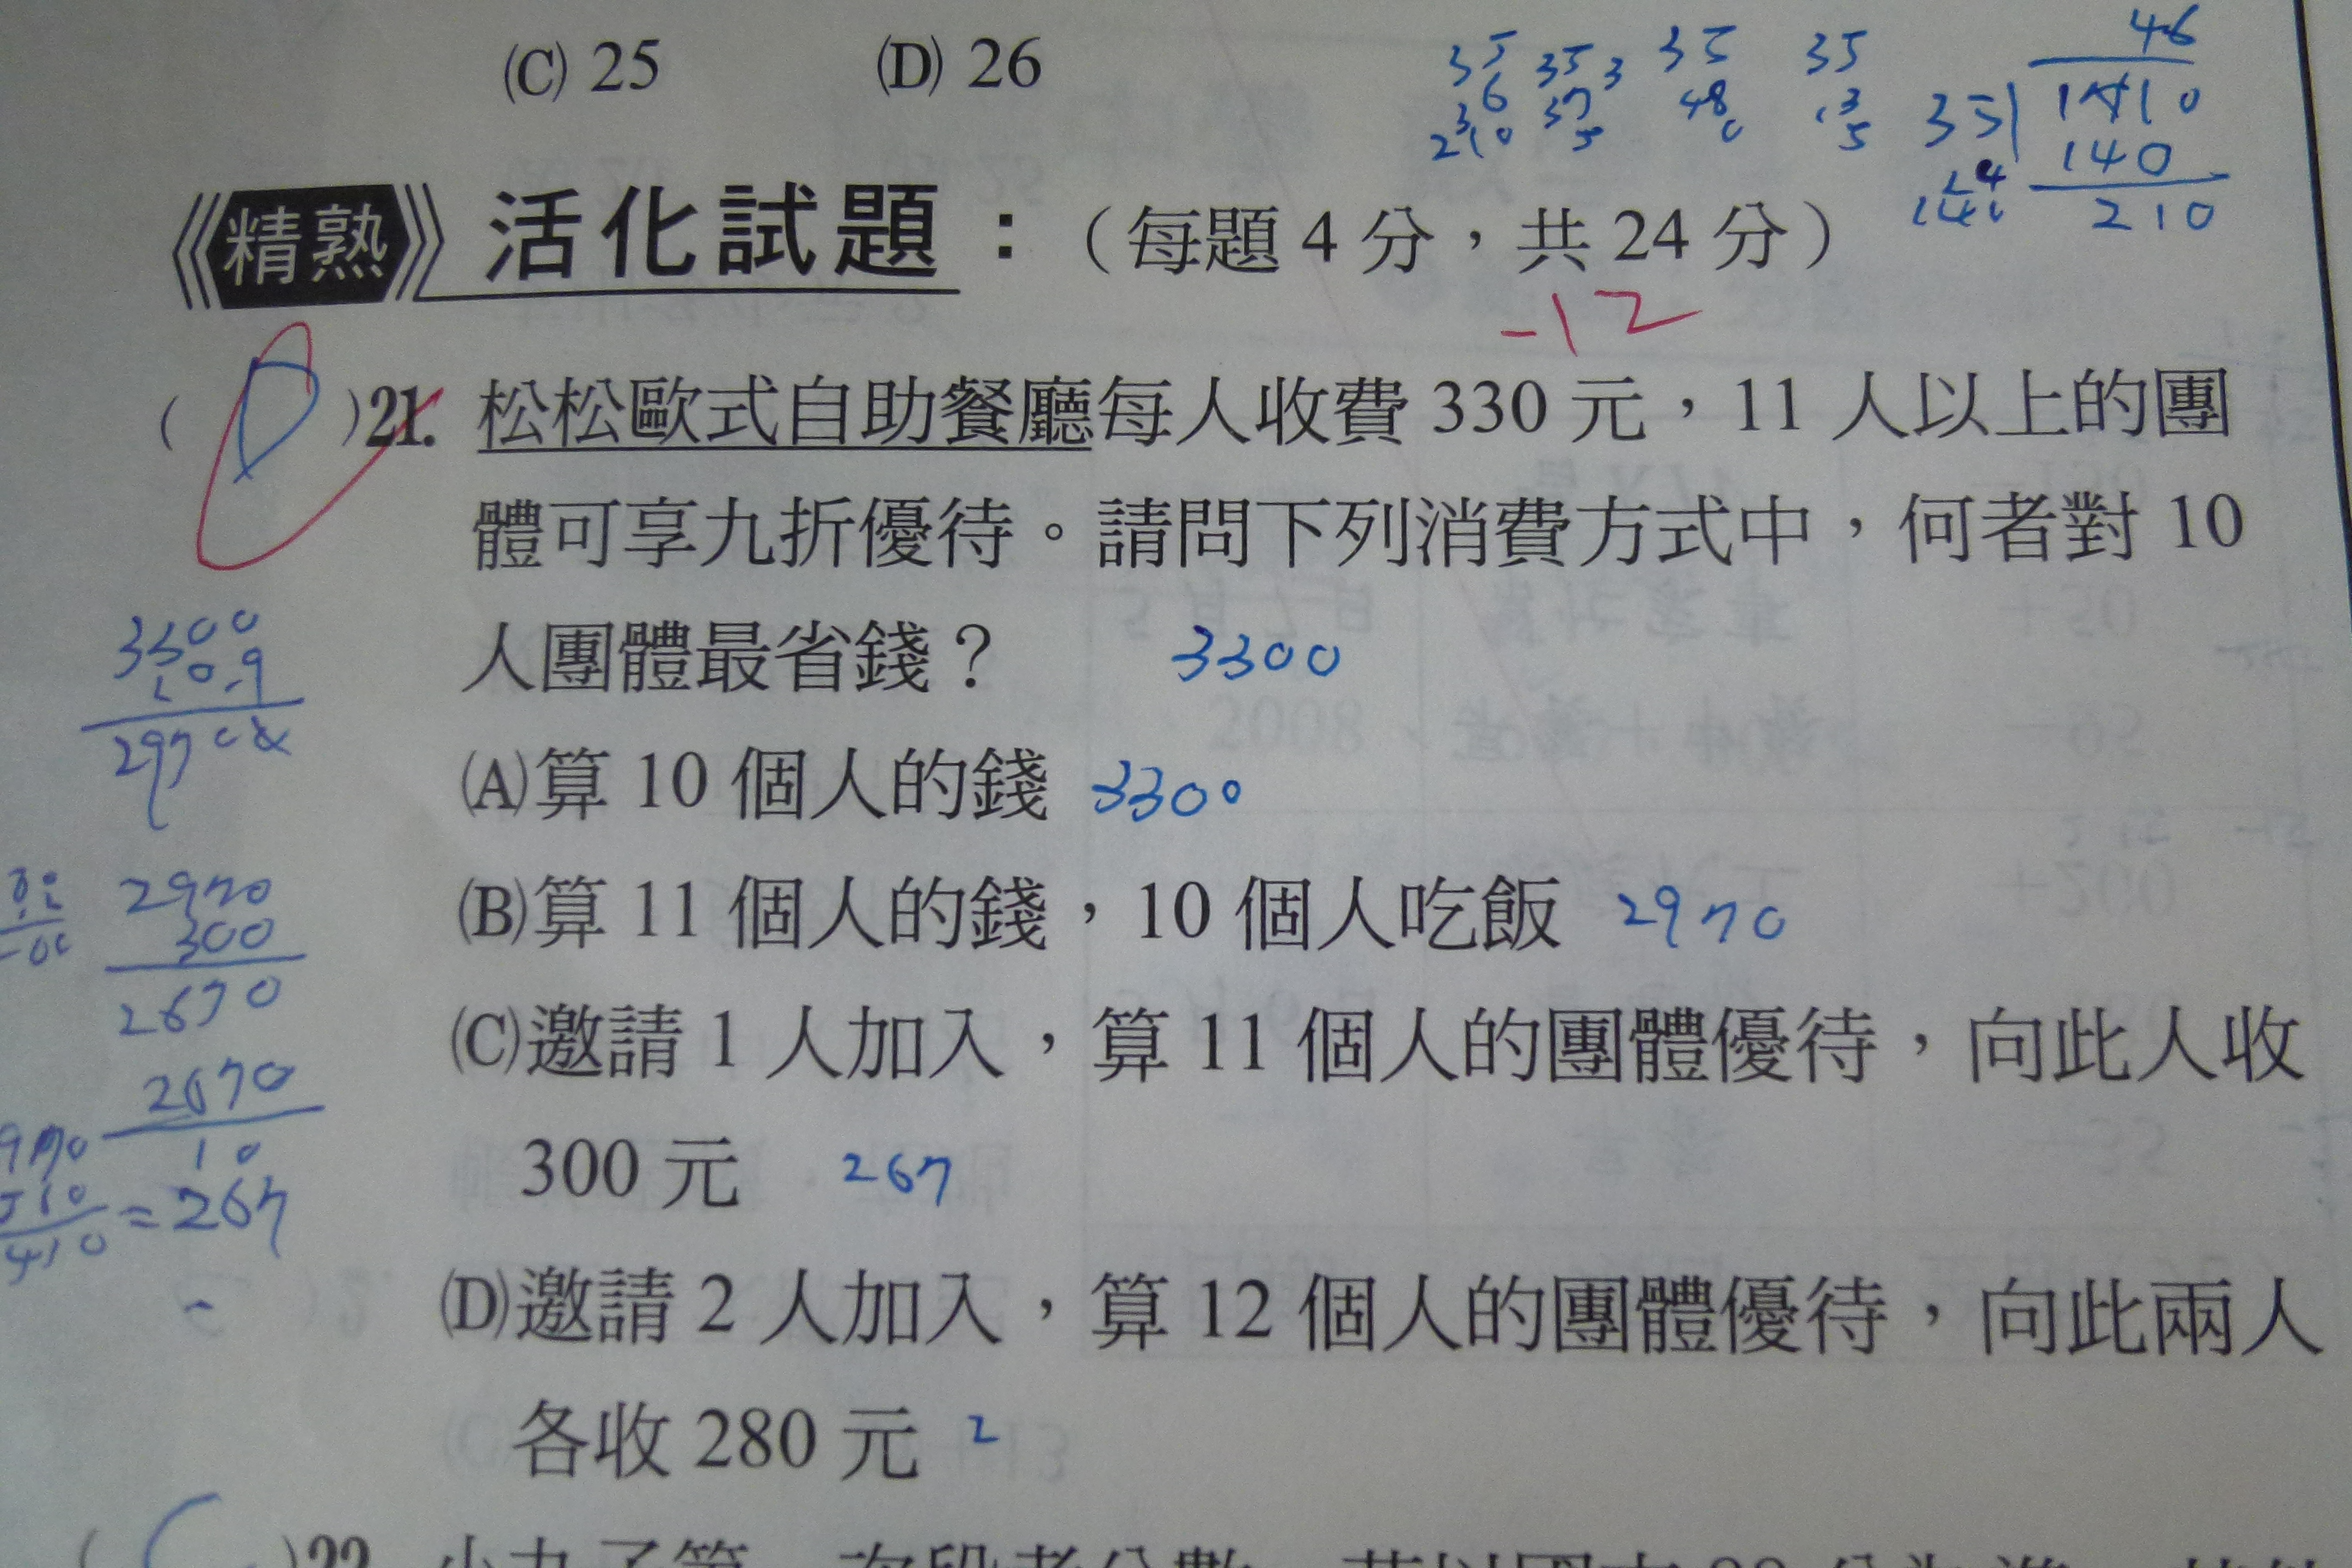 (C) 25 (D) 26
35 35 3 35 35 46
6 37 48 13 35 1610
3 5 0 5 140
210 210
精熟 活化試題：（每題 4 分，共 24 分）
-12
( D )21. 松松歐式自助餐廳每人收費 330 元，11 人以上的團
體可享九折優待。請問下列消費方式中，何者對 10
人團體最省錢？ 3300
(A)算 10 個人的錢 3300
(B)算 11 個人的錢，10 個人吃飯 2970
(C)邀請 1 人加入，算 11 個人的團體優待，向此人收
300 元 267
(D)邀請 2 人加入，算 12 個人的團體優待，向此兩人
各收 280 元 2
3300
0.9
2970
2970
300
2670
2670
10
= 267
( )22.